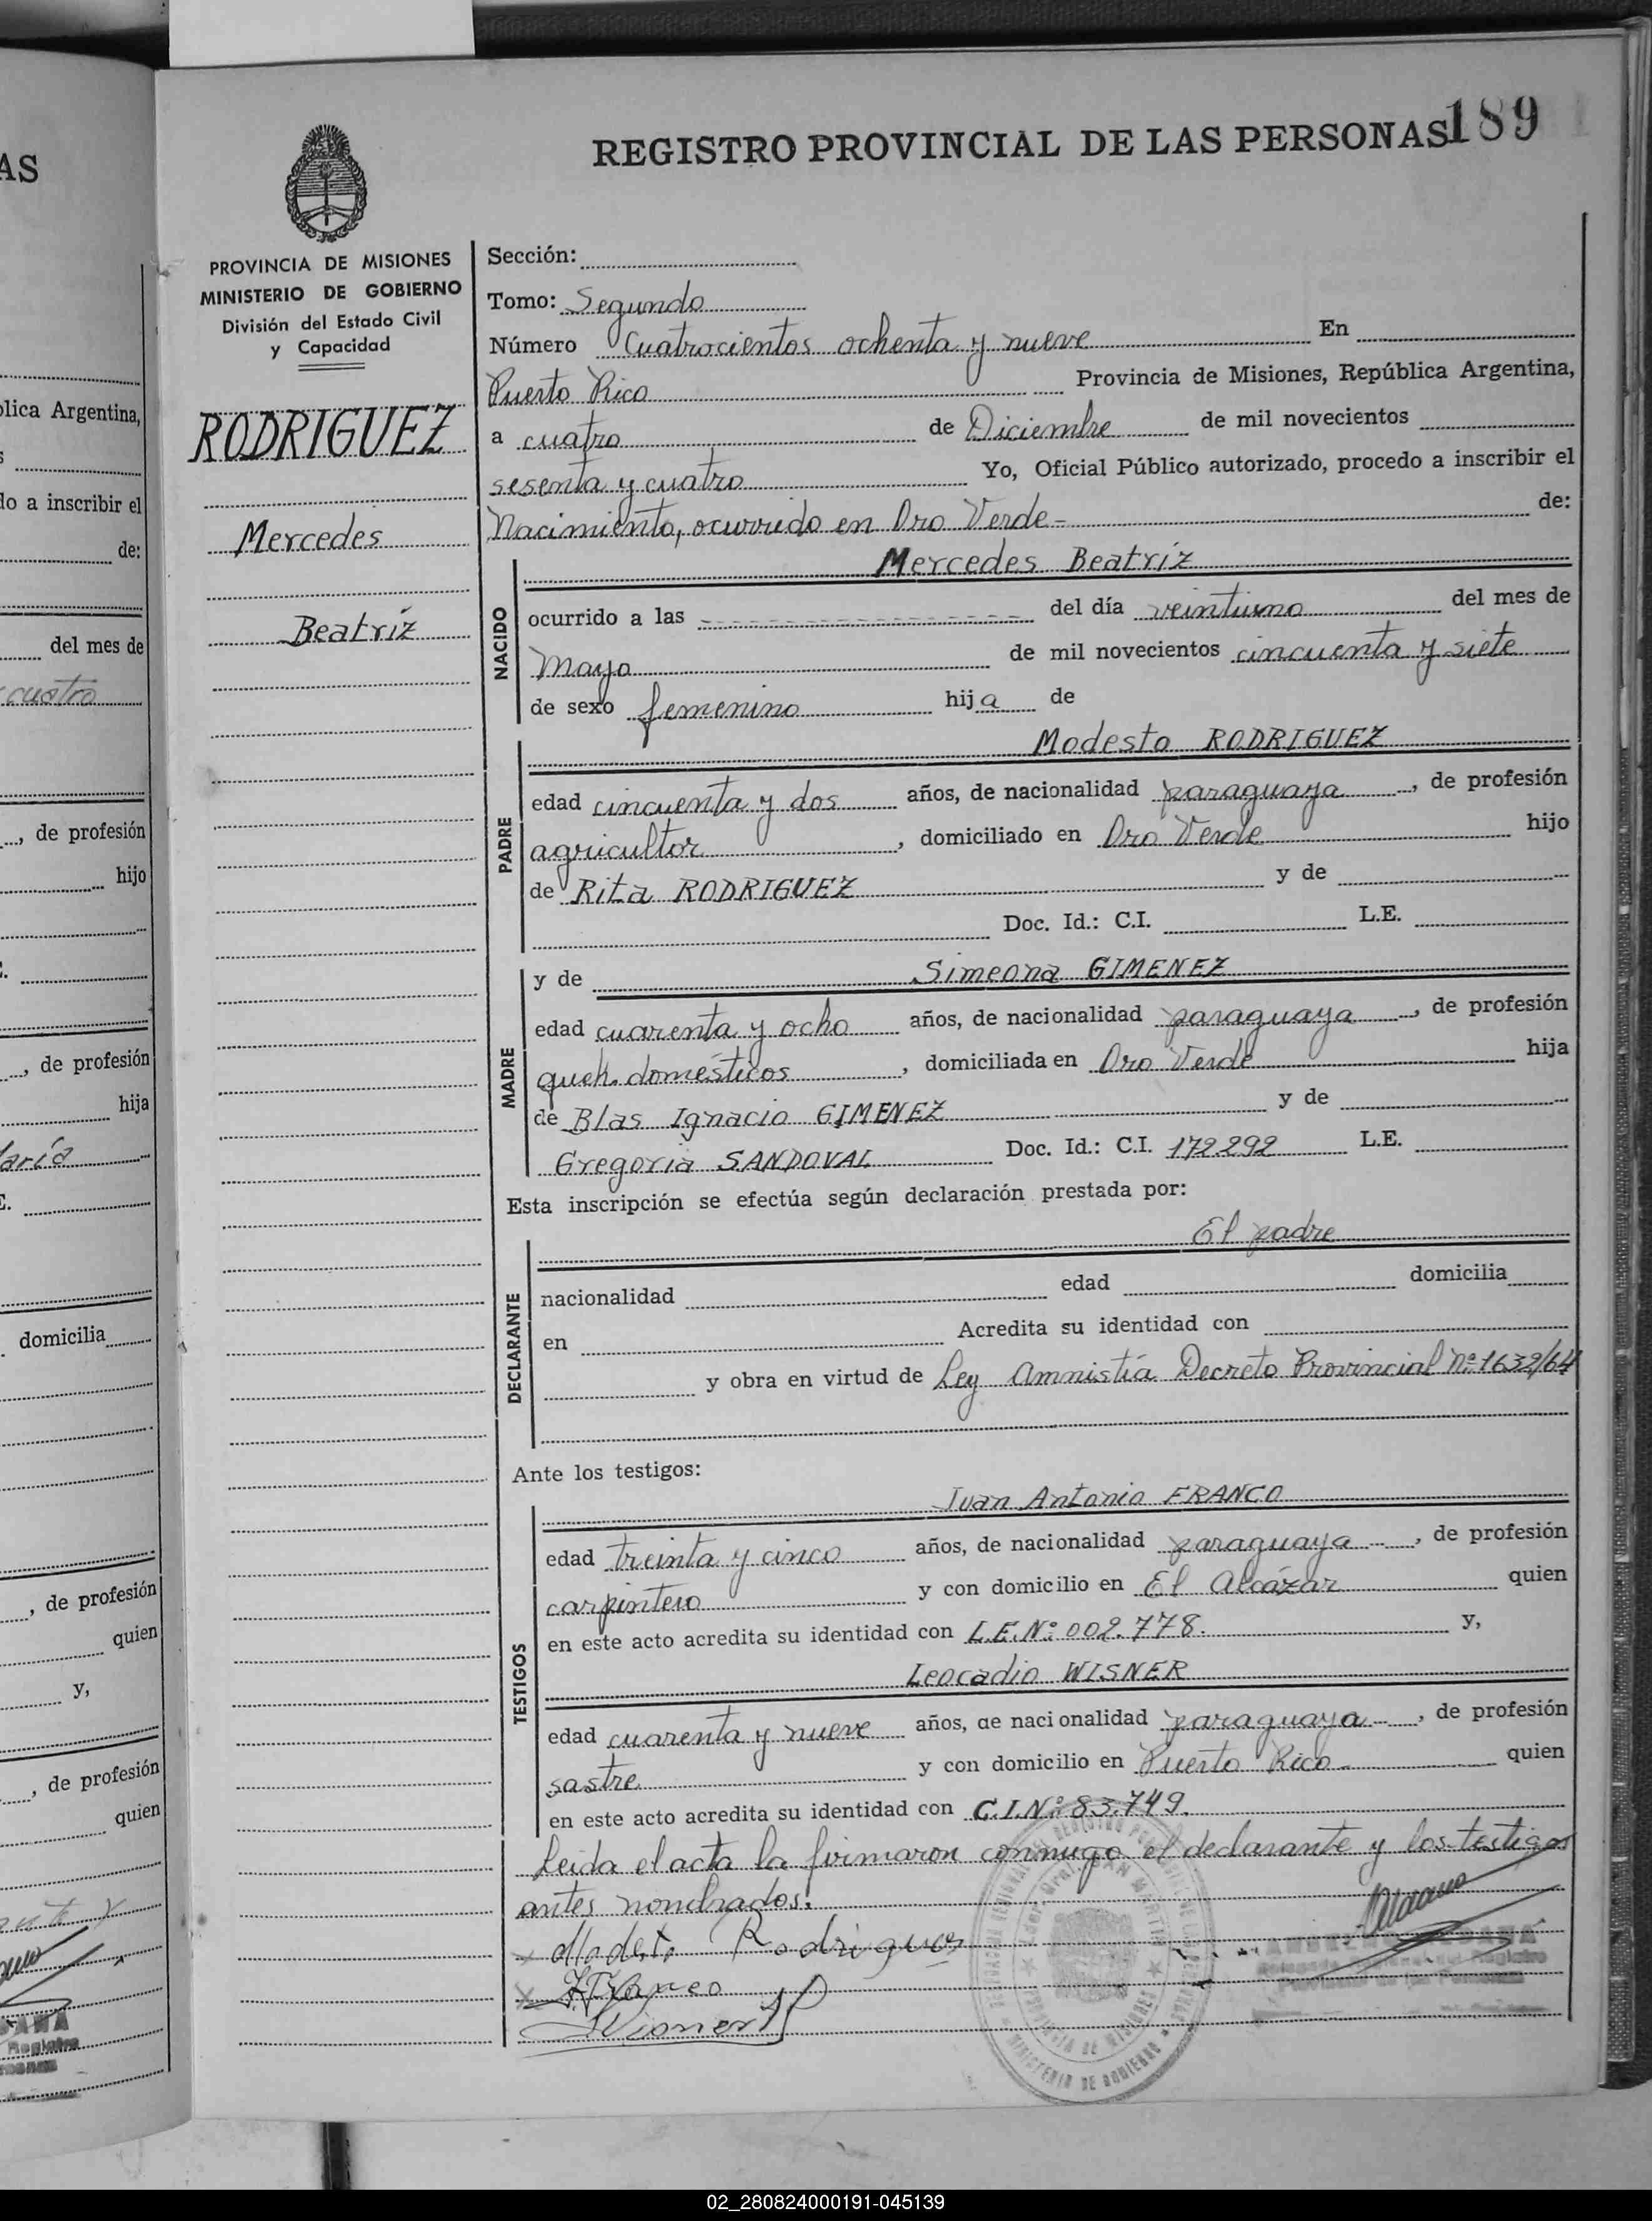 REGISTRO PROVINCIAL DE LAS PERSONAS 189
PROVINCIA DE MISIONES
MINISTERIO DE GOBIERNO
División del Estado Civil
y Capacidad
RODRIGUEZ
Mercedes
Beatriz
Sección:
Tomo: Segundo
Número Cuatrocientos ochenta y nueve En
Puerto Rico Provincia de Misiones, República Argentina,
a cuatro de Diciembre de mil novecientos
sesenta y cuatro Yo, Oficial Público autorizado, procedo a inscribir el
Nacimiento, ocurrido en Oro Verde- de:
NACIDO
Mercedes Beatriz
ocurrido a las ---------------- del día veintiuno del mes de
Mayo de mil novecientos cincuenta y siete
de sexo femenino hija de
PADRE
Modesto RODRIGUEZ
edad cincuenta y dos años, de nacionalidad paraguaya, de profesión
agricultor, domiciliado en Oro Verde hijo
de Rita RODRIGUEZ y de
Doc. Id.: C.I. L.E.
MADRE
y de Simeona GIMENEZ
edad cuarenta y ocho años, de nacionalidad paraguaya, de profesión
queh. domésticos, domiciliada en Oro Verde hija
de Blas Ignacio GIMENEZ y de
Gregoria SANDOVAL Doc. Id.: C.I. 172292 L.E.
Esta inscripción se efectúa según declaración prestada por:
DECLARANTE
El padre
nacionalidad edad domicilia
en Acredita su identidad con
y obra en virtud de Ley Amnistía Decreto Provincial Nº 1632/64
Ante los testigos:
TESTIGOS
Juan Antonio FRANCO
edad treinta y cinco años, de nacionalidad paraguaya --, de profesión
carpintero y con domicilio en El Alcázar quien
en este acto acredita su identidad con L.E.Nº: 002.778. y,
Leocadio WISNER
edad cuarenta y nueve años, de nacionalidad paraguaya --, de profesión
sastre y con domicilio en Puerto Rico - quien
en este acto acredita su identidad con C.I.Nº: 83.749.
Leida el acta la firmaron conmigo el declarante y los testigos
antes nombrados.
Modesto Rodriguez
Franco
Wisner
AS
blica Argentina,
do a inscribir el
de:
del mes de
cuatro
, de profesión
hijo
, de profesión
hija
domicilia
, de profesión
quien
y,
, de profesión
quien
02_280824000191-045139